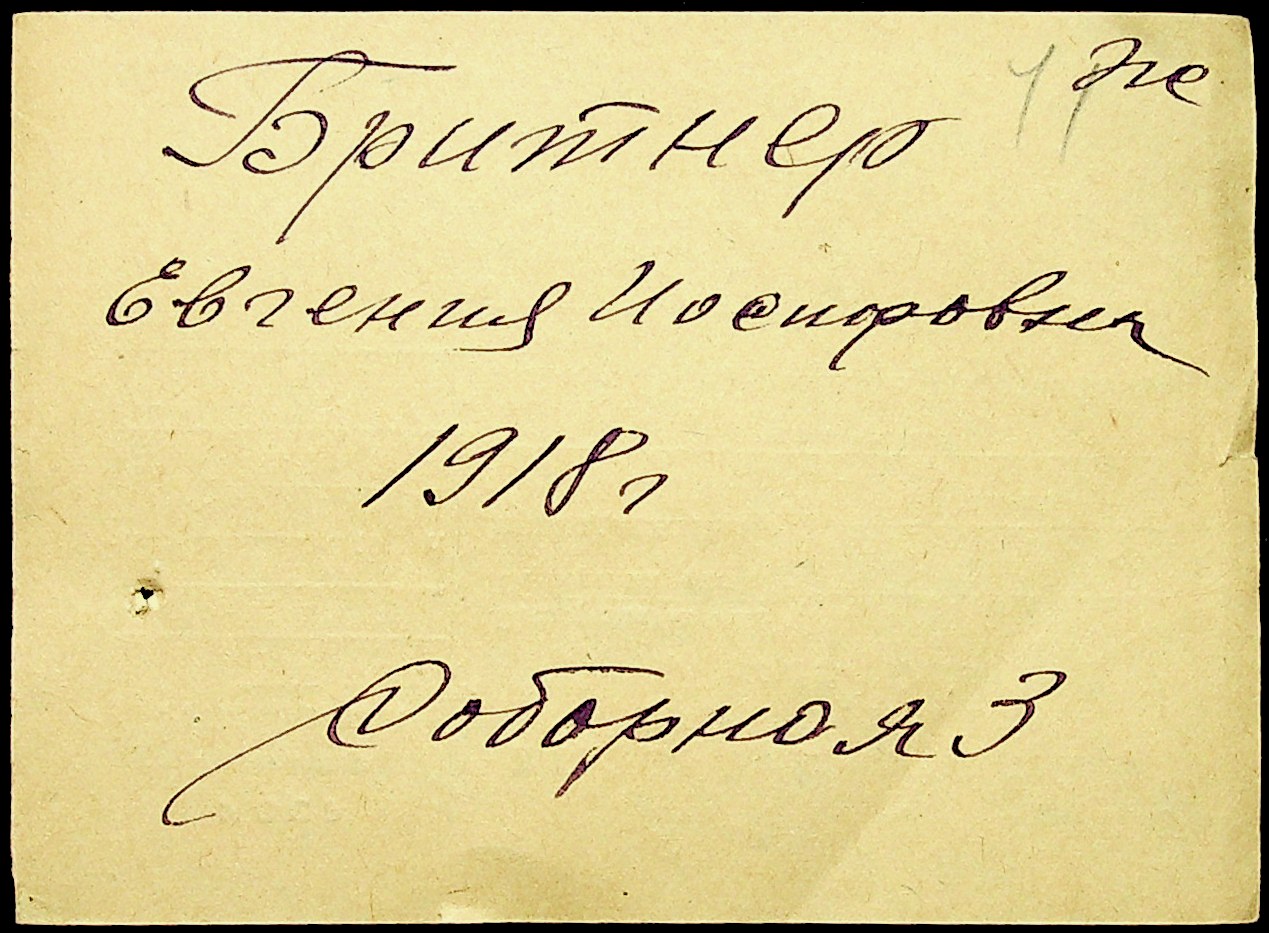 же
Бритнер
Евгения Иосифовна
1918г
Соборная 3